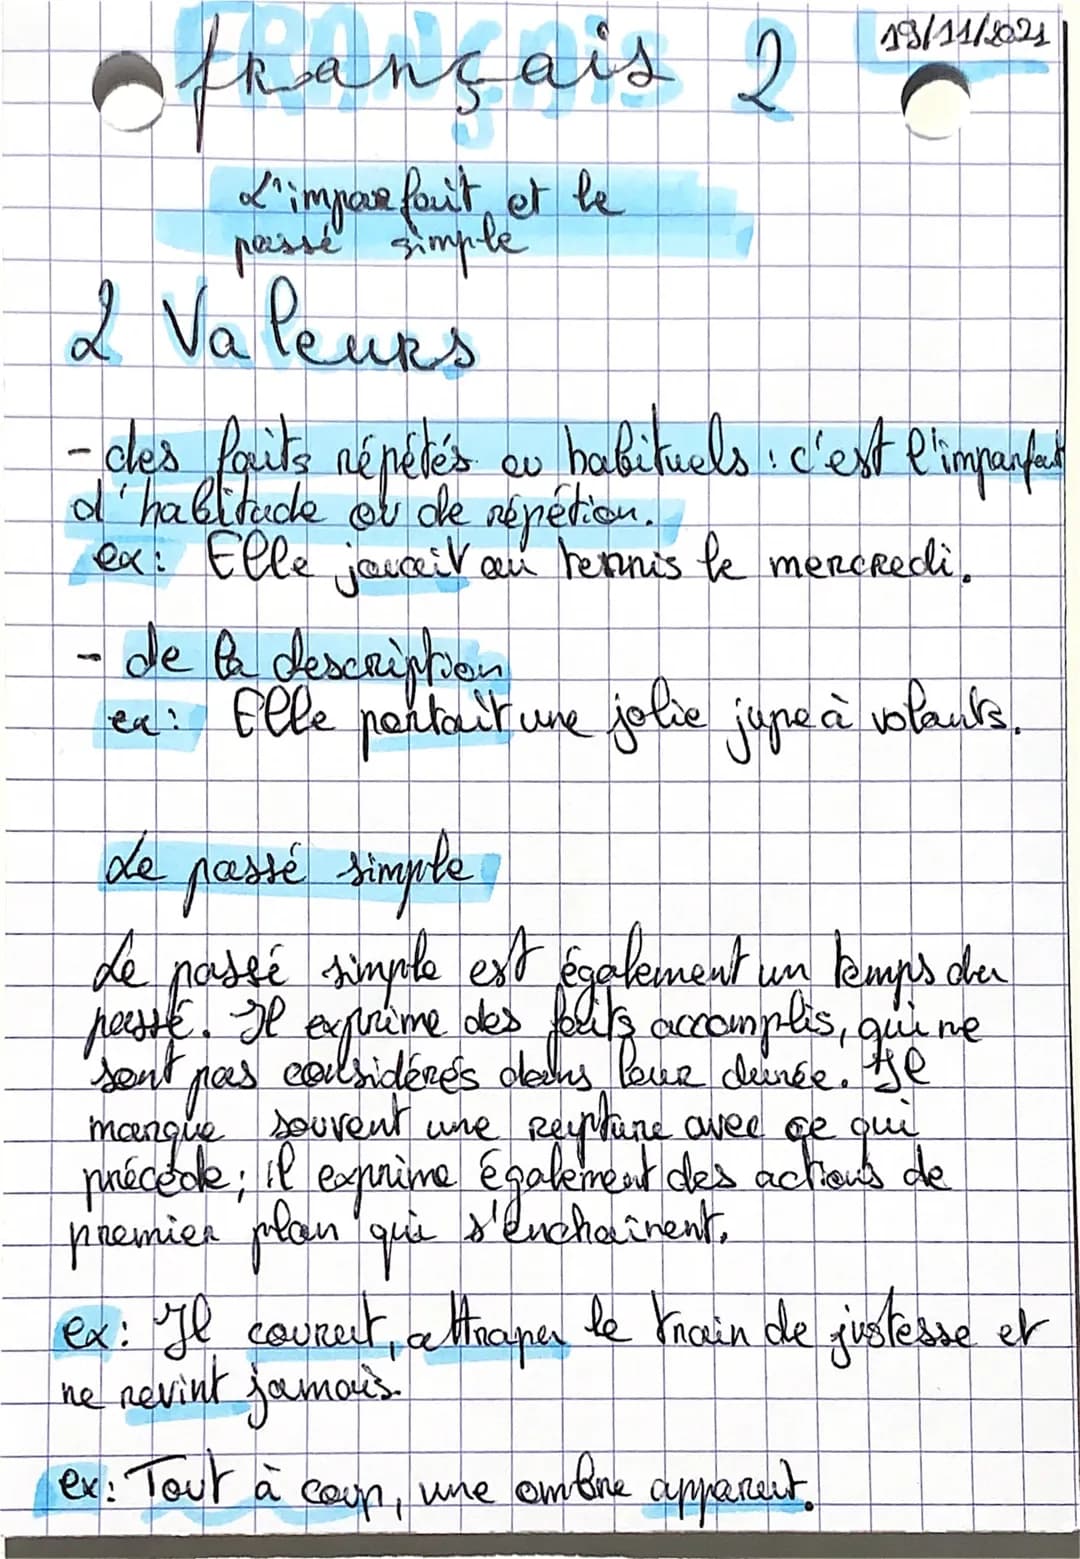 19/11/2021
français 2
L'imparfait et le
passé simple
2 Valeurs
- des faits répétés ou habituels : c'est l'imparfait
d'habitude ou de répétion.
ex : Elle jouait au tennis le mercredi.
- de la description
ex : Elle portait une jolie jupe à volants.
Le passé simple
Le passé simple est également un temps du
passé. Il exprime des faits accomplis, qui ne
sont pas considérés dans leur durée. Il
marque souvent une rupture avec ce qui
précède ; il exprime également des actions de
premier plan qui s'enchaînent.
ex : Il courut, attraper le train de justesse et
ne revint jamais.
ex : Tout à coup, une ombre apparut.